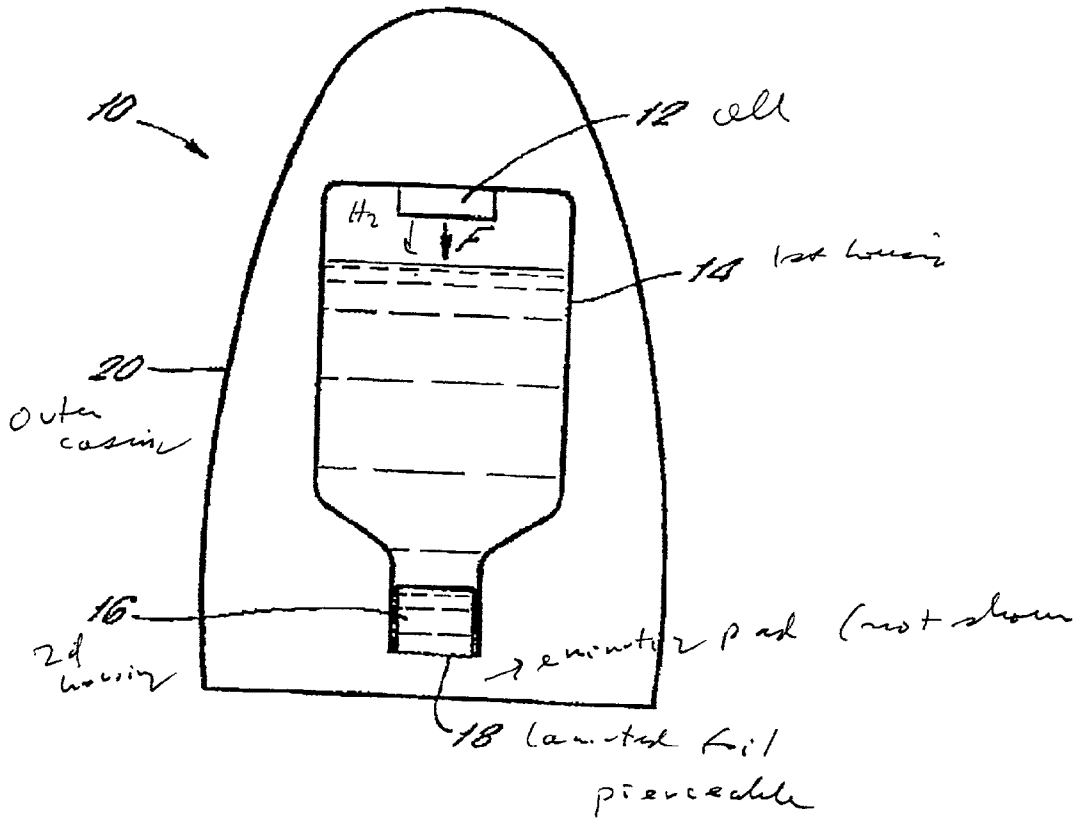 10
12 cell
H2
F
14 1st housing
20
Outer
casing
16
2d
housing
→ pad (not shown
18 laminated foil
pierceable